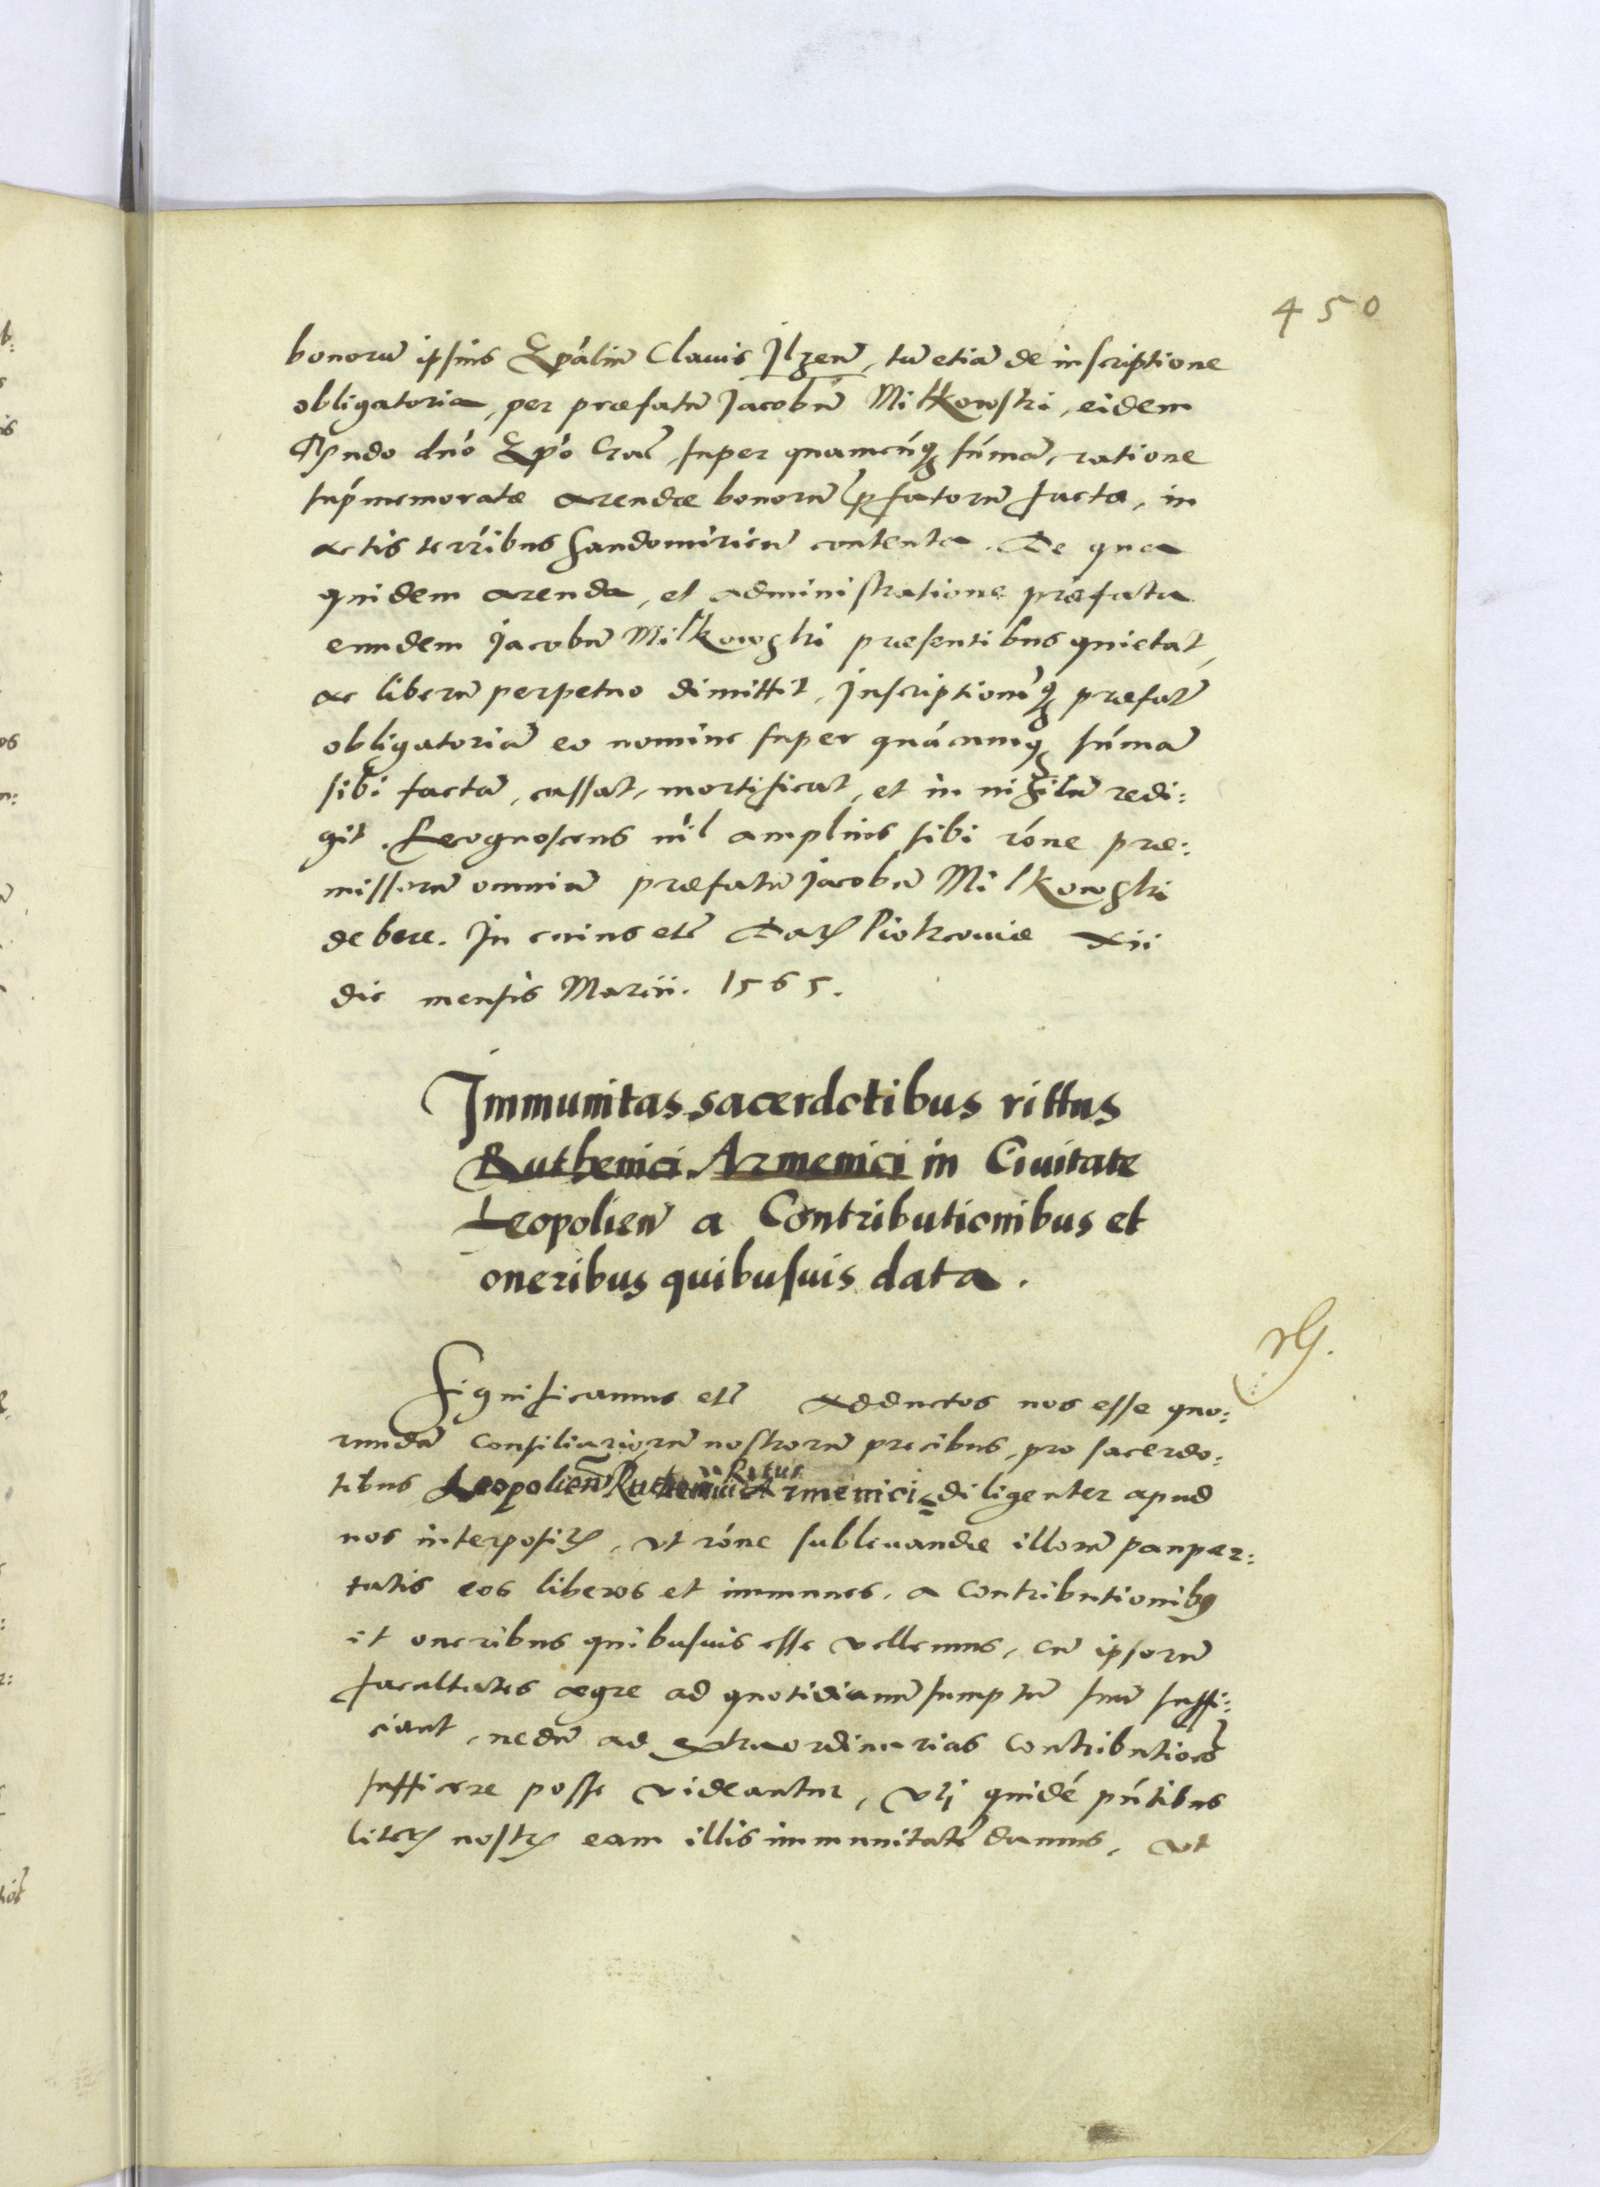 450
bonorū ipsius Ep̃aliū Clauis Jlzeñ, tū etiā de inscriptione
obligatoria, per præfatū Jacobū Milkowski, eidem
Rñdo dnó Epó Craĉ, super quamcúq; súmā, ratione
sup̃memoratæ arendæ bonorū p̃fatorū facta, in
actis terribus Sandomirieñ contenta. De qua
quidem arenda, et administratione præfata
eundem Jacobū Milkowski præsentibus quietat,
ac liberū perpetuo dimittit, Inscriptionẽq; præfatā
obligatoriā eo nomine super quácunq; súmā
sibi factā, cassat, mortificat, et in nihilū redi:
git. Recognoscens níl amplius sibi róne præ:
missorū omniū præfatū Jacobū Milkowski
debere. In cuius etc̃ Datȝ Piotrcouiæ xii
die mensis Marcii. 1565.
Immunitas sacerdotibus rittus
Ruthenici Armenici in Ciuitate
Leopolieñ a Contributionibus et
oneribus quibusuis data.
Significamus etc̃ Adductos nos esse quo:
rundā consiliariorū nostrorū precibus, pro sacerdo:
Ritus
tibus Leopolieñ Ruthenici Armenici diligenter apud
nos interpositȝ, vt róne subleuandæ illorū pauper:
tatis eos liberos et immunes, a contributionibȝ
et oneribus quibusuis esse vellemus, cū ipsorū
facultates ægre ad quotidianū sumptū suū suffi:
ciant, nedū ad extraordinarias contributiões
sufficere posse videantur, Vti quidé pńtibus
literȝ nostrȝ eam illis immunitatẽ damus, vt